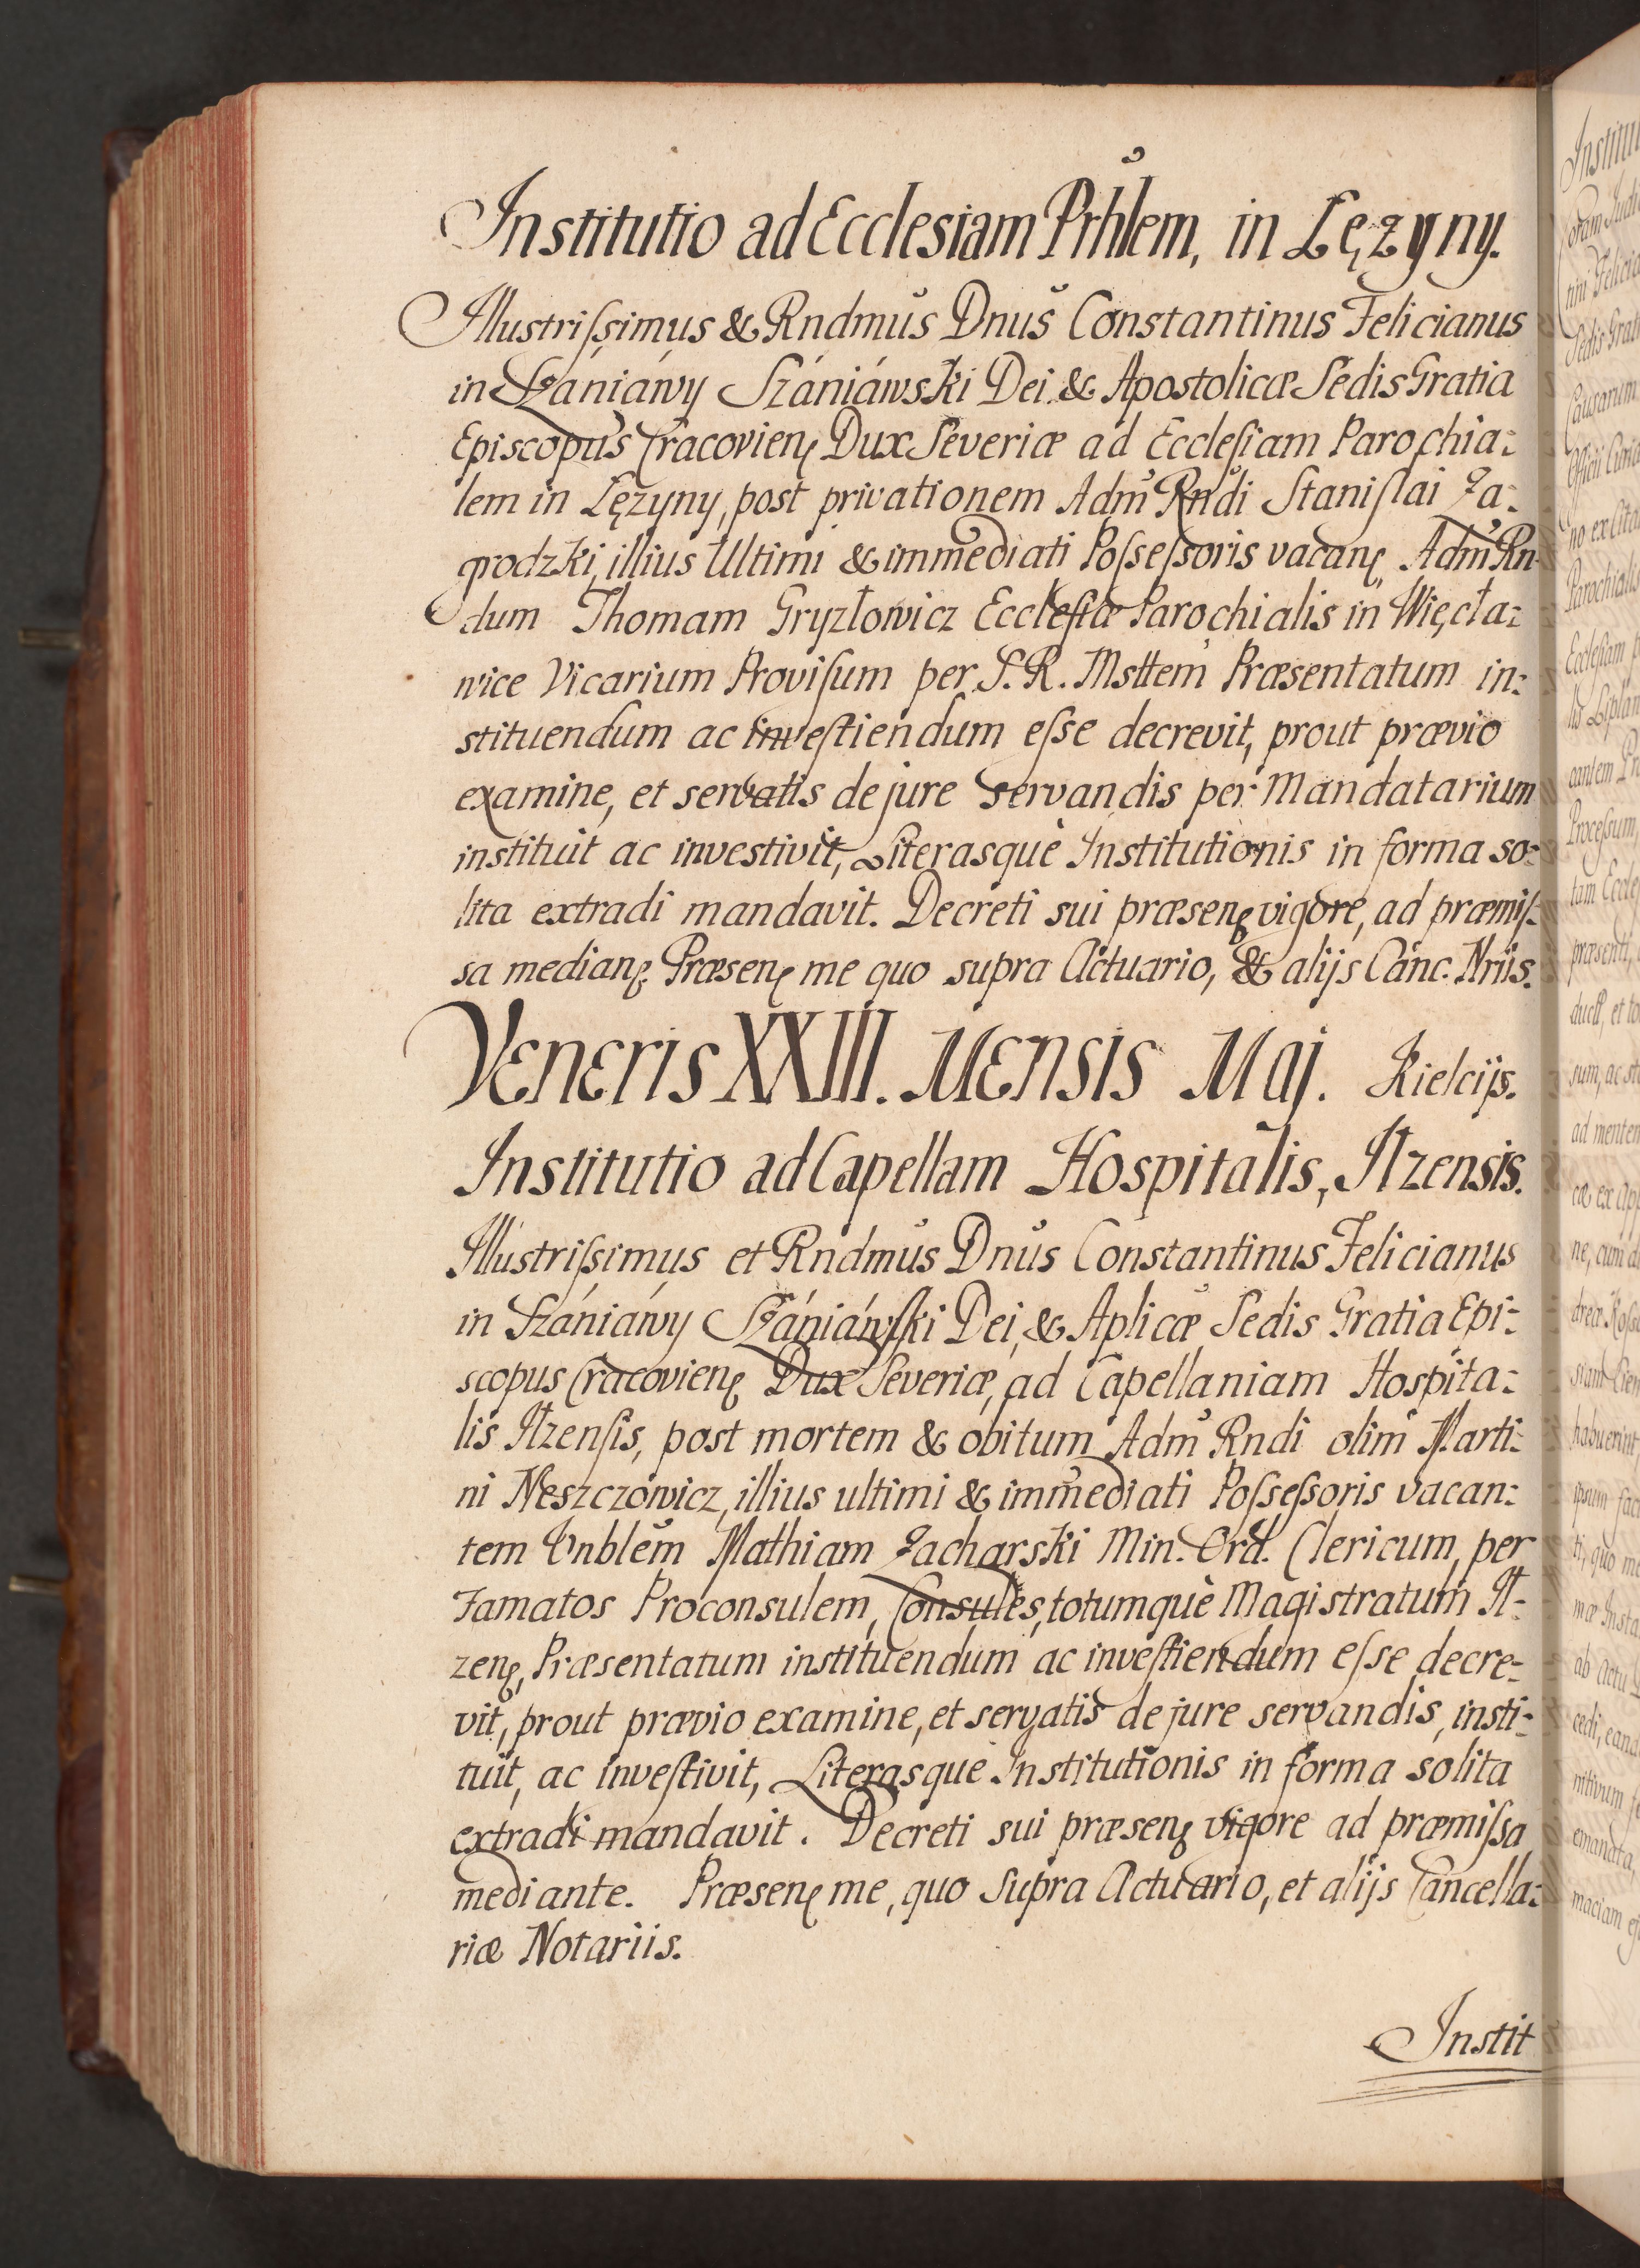 Institutio ad Ecclesiam Prhlem, in Lęzyny.
Illustrissimus & Rndmus Dnus Constantinus Felicianus
in Szaniáwy Szániáwski Dei & Apostolicæ Sedis Gratia
Episcopus Cracovien Dux Severiæ ad Ecclesiam Parochia:
lem in Lęzyny, post privationem Adm Rndi Stanislai Za:
grodzki, illius Ultimi & immediati Possessoris vacan Adm Rn
dum Thomam Gryzłowicz Ecclesiæ Parochialis in Więcła:
wice Vicarium Provisum per S. R. Msttem Præsentatum in:
stituendum ac investiendum esse decrevit, prout prævio
examine, et servatis de jure servandis per Mandatarium
instituit ac investivit, Literasquè Institutionis in forma so:
lita extradi mandavit. Decreti sui præsen vigore, ad præmis:
sa median. Præsen me quo supra Actuario, & alijs Canc. Nriis.
Veneris XXIII. Mensis Maj. Kielcijs.
Institutio ad Capellam Hospitalis, Ilzensis.
Illustrissimus et Rndmus Dnus Constantinus Felicianus
in Szániáwy Szániáwski Dei, & Aplicæ Sedis Gratia Epi:
scopus Cracovien Dux Severiæ, ad Capellaniam Hospita:
lis Iłzensis, post mortem & obitum Adm Rndi olim Marti:
ni Neszczowicz, illius ultimi & immediati Possessoris vacan:
tem Vnblem Mathiam Zacharski Min. Ord. Clericum, per
Famatos Proconsulem, Consules, totumquè Magistratum Ił:
zen, Præsentatum instituendum ac investiendum esse decre:
vit, prout prævio examine, et servatis de jure servandis, insti:
tuit, ac investivit, Literasque Institutionis in forma solita
extradi mandavit. Decreti sui præsen vigore ad præmissa
mediante. Præsen me, quo supra Actuario, et alijs Cancella:
riæ Notariis.
Instit